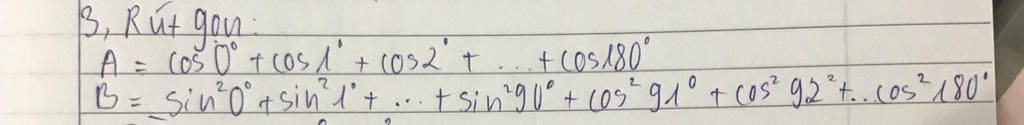 3, Rút gọn:
A = cos 0° + cos 1° + cos 2° + ... + cos 180°
B = sin²0° + sin²1° + ... + sin²90° + cos²91° + cos²92° + .. cos²180°